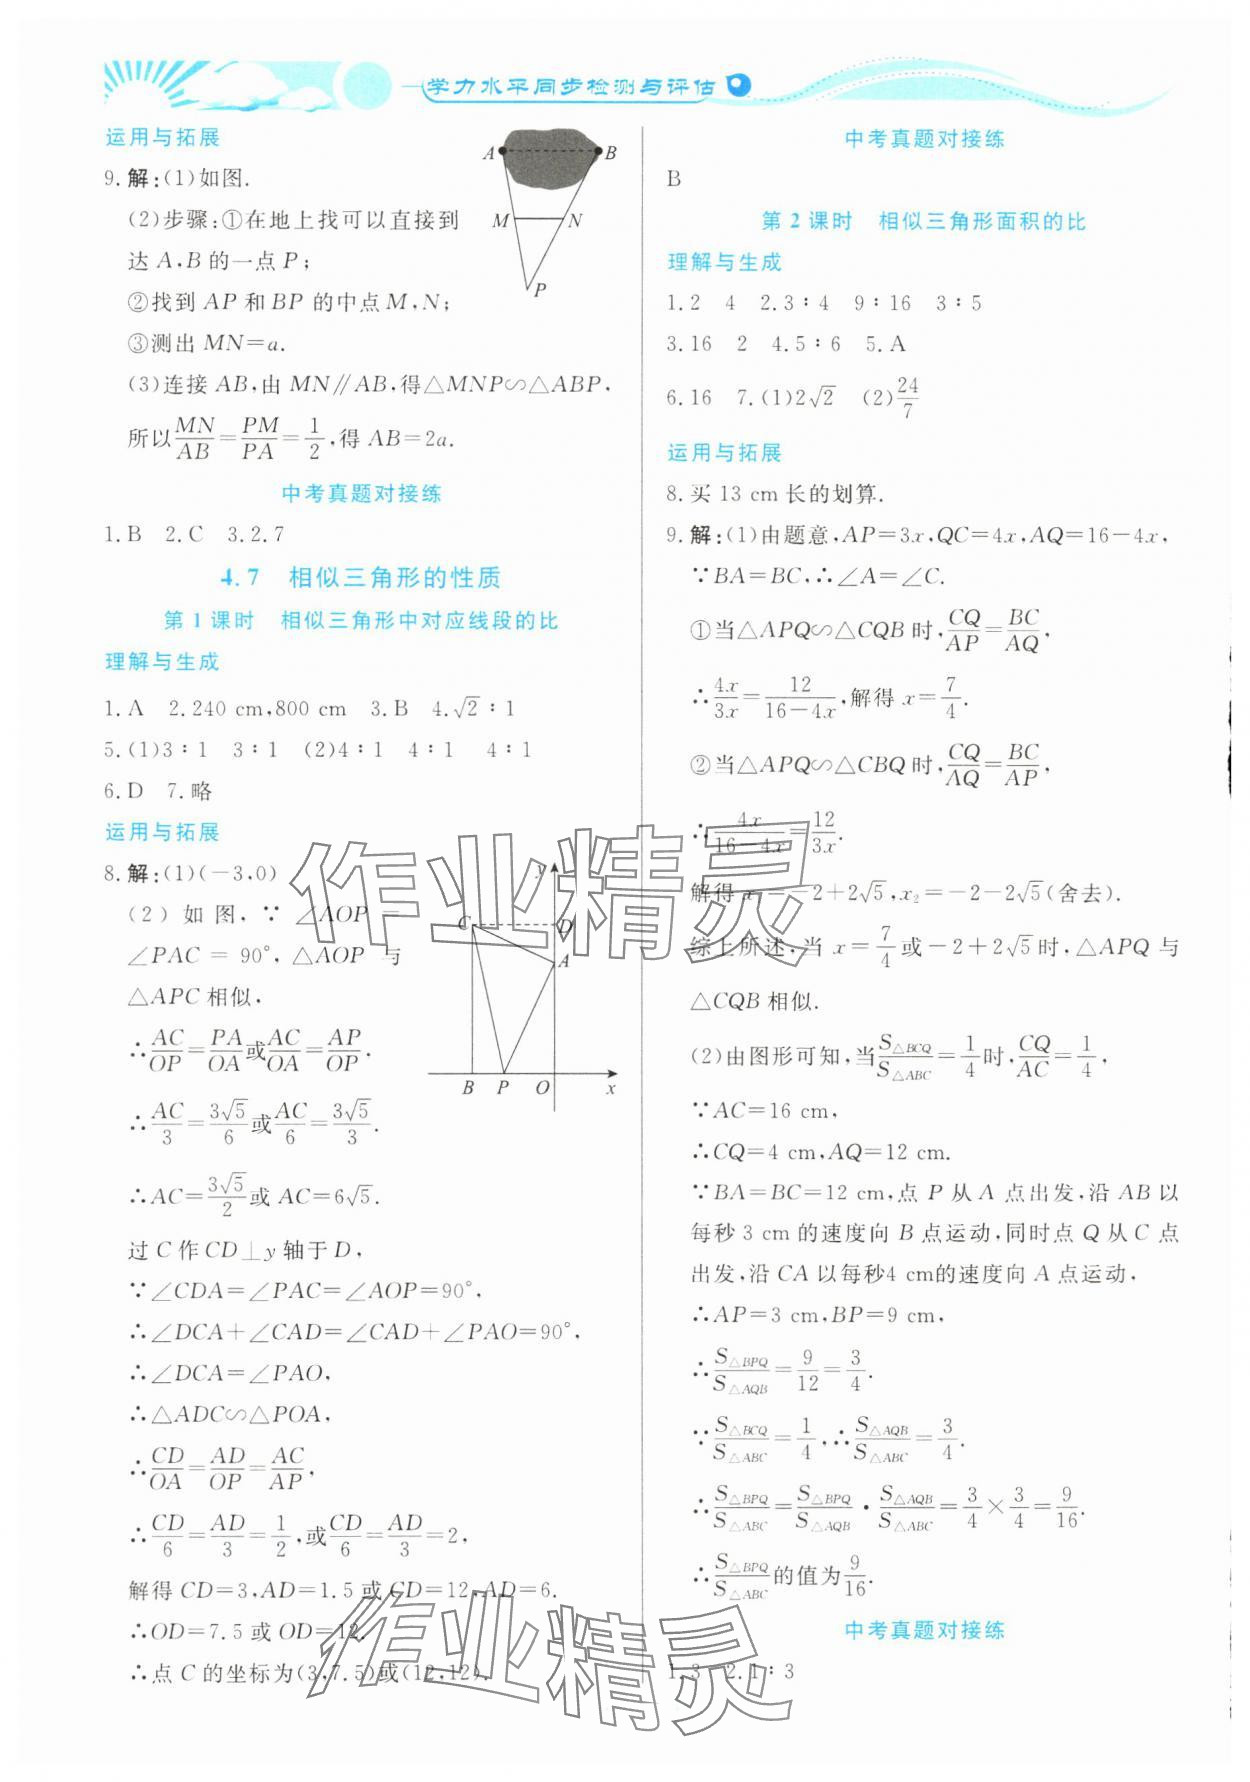 学力水平同步检测与评估
运用与拓展
9.解:(1)如图.
(2)步骤:①在地上找可以直接到
达 A,B 的一点 P;
②找到 AP 和 BP 的中点 M,N;
③测出 MN=a.
(3)连接 AB,由 MN∥AB,得△MNP∽△ABP,
所以MN/AB=PM/PA=1/2,得 AB=2a.
A B
M N
P
中考真题对接练
1.B 2.C 3.2.7
4.7 相似三角形的性质
第 1 课时 相似三角形中对应线段的比
理解与生成
1.A 2.240 cm,800 cm 3.B 4.√2∶1
5.(1)3∶1 3∶1 (2)4∶1 4∶1 4∶1
6.D 7.略
运用与拓展
8.解:(1)(-3,0)
(2) 如 图, ∵ ∠AOP =
∠PAC = 90°, △AOP 与
△APC 相似,
∴AC/OP=PA/OA或AC/OA=AP/OP.
∴AC/3=3√5/6或AC/6=3√5/3.
∴AC=3√5/2或 AC=6√5.
y
C D
A
B P O x
过 C 作 CD⊥y 轴于 D,
∵∠CDA=∠PAC=∠AOP=90°,
∴∠DCA+∠CAD=∠CAD+∠PAO=90°,
∴∠DCA=∠PAO,
∴△ADC∽△POA,
∴CD/OA=AD/OP=AC/AP,
∴CD/6=AD/3=1/2,或CD/6=AD/3=2,
解得 CD=3,AD=1.5 或 CD=12,AD=6.
∴OD=7.5 或 OD=12.
∴点 C 的坐标为(3,7.5)或(12,12).
中考真题对接练
B
第 2 课时 相似三角形面积的比
理解与生成
1.2 4 2.3∶4 9∶16 3∶5
3.16 2 4.5∶6 5.A
6.16 7.(1)2√2 (2)24/7
运用与拓展
8.买 13 cm 长的划算.
9.解:(1)由题意,AP=3x,QC=4x,AQ=16-4x,
∵BA=BC,∴∠A=∠C.
①当△APQ∽△CQB 时,CQ/AP=BC/AQ,
∴4x/3x=12/16-4x,解得 x=7/4.
②当△APQ∽△CBQ 时,CQ/AQ=BC/AP,
∴4x/16-4x=12/3x.
解得 x =-2+2√5,x₂=-2-2√5(舍去).
综上所述,当 x=7/4或-2+2√5时,△APQ 与
△CQB 相似.
(2)由图形可知,当S△BCQ/S△ABC=1/4时,CQ/AC=1/4,
∵AC=16 cm,
∴CQ=4 cm,AQ=12 cm.
∵BA=BC=12 cm,点 P 从 A 点出发,沿 AB 以
每秒 3 cm 的速度向 B 点运动,同时点 Q 从 C 点
出发,沿 CA 以每秒4 cm的速度向 A 点运动,
∴AP=3 cm,BP=9 cm,
∴S△BPQ/S△AQB=9/12=3/4.
∵S△BCQ/S△ABC=1/4,∴S△AQB/S△ABC=3/4.
∴S△BPQ/S△ABC=S△BPQ/S△AQB·S△AQB/S△ABC=3/4×3/4=9/16.
∴S△BPQ/S△ABC的值为9/16.
中考真题对接练
1.3 2.1∶3
作业精灵
作业精灵